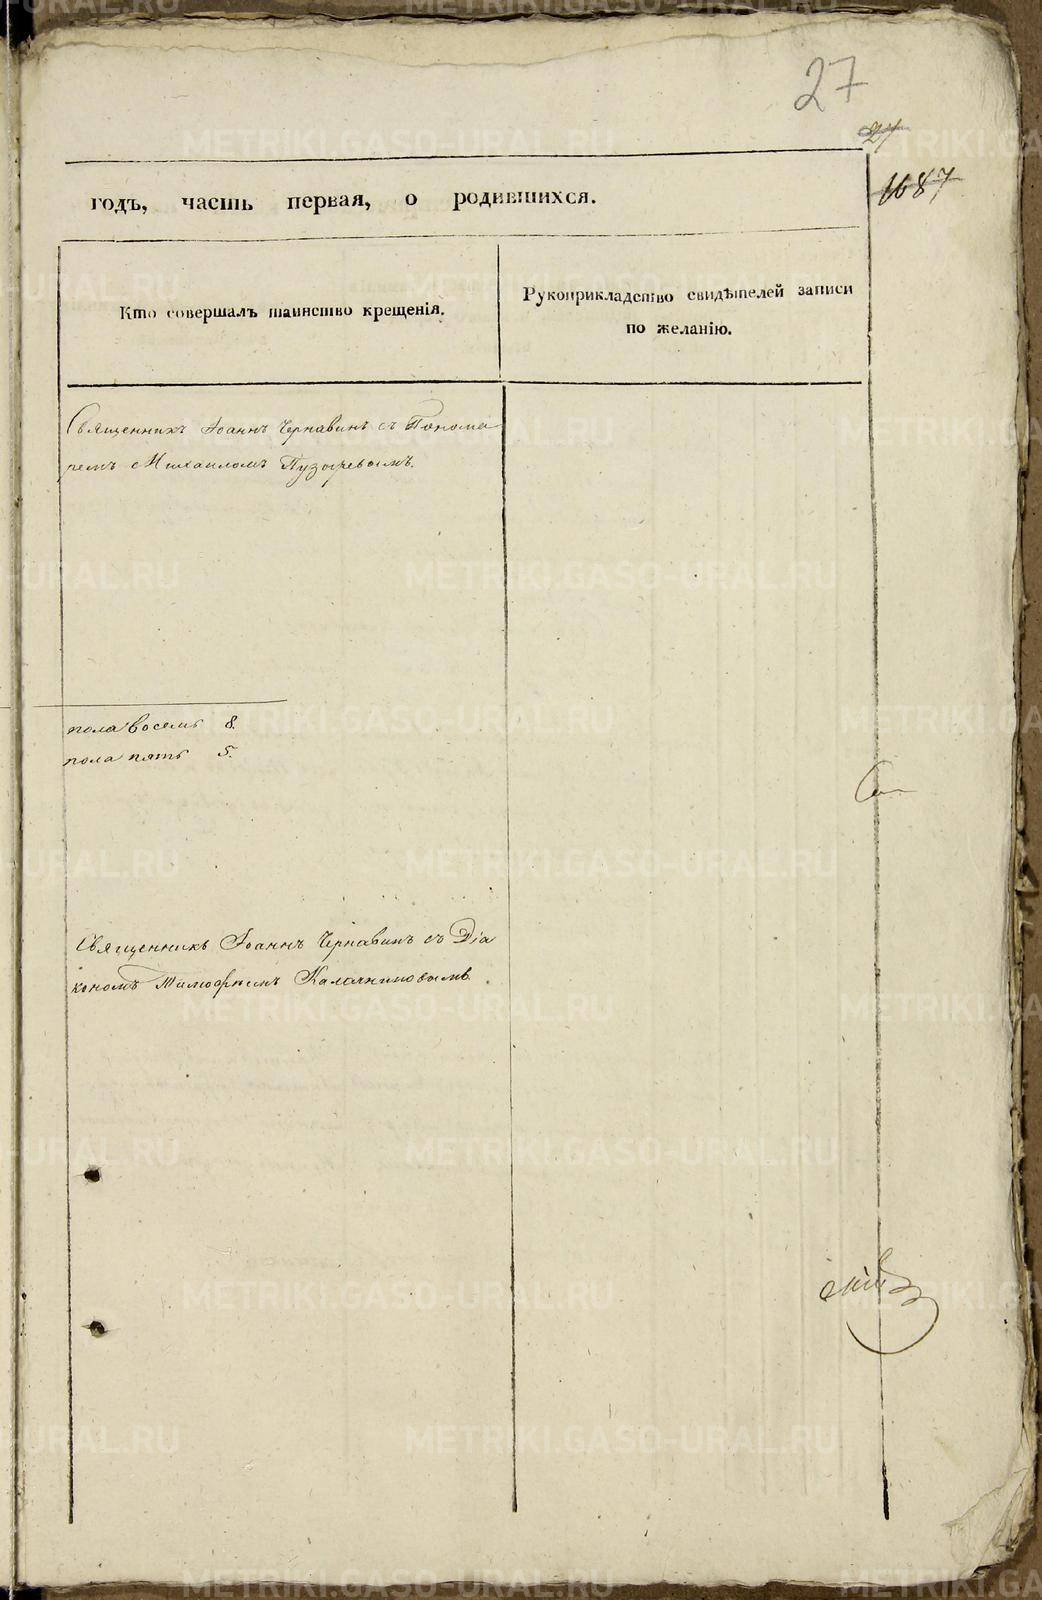 27
27
1687
годъ, часть первая, о родившихся.
Кто совершалъ таинство крещенія.
Рукоприкладство свидѣтелей записи
по желанію.
Священникъ Іоаннъ Чернавинъ съ Понома
ремъ Михаиломъ Пузыревымъ.
пола восемь 8.
пола пять 5.
Священникъ Іоаннъ Чернавинъ съ Діа
кономъ Тимофеемъ
METRIKI.GASO-URAL.RU